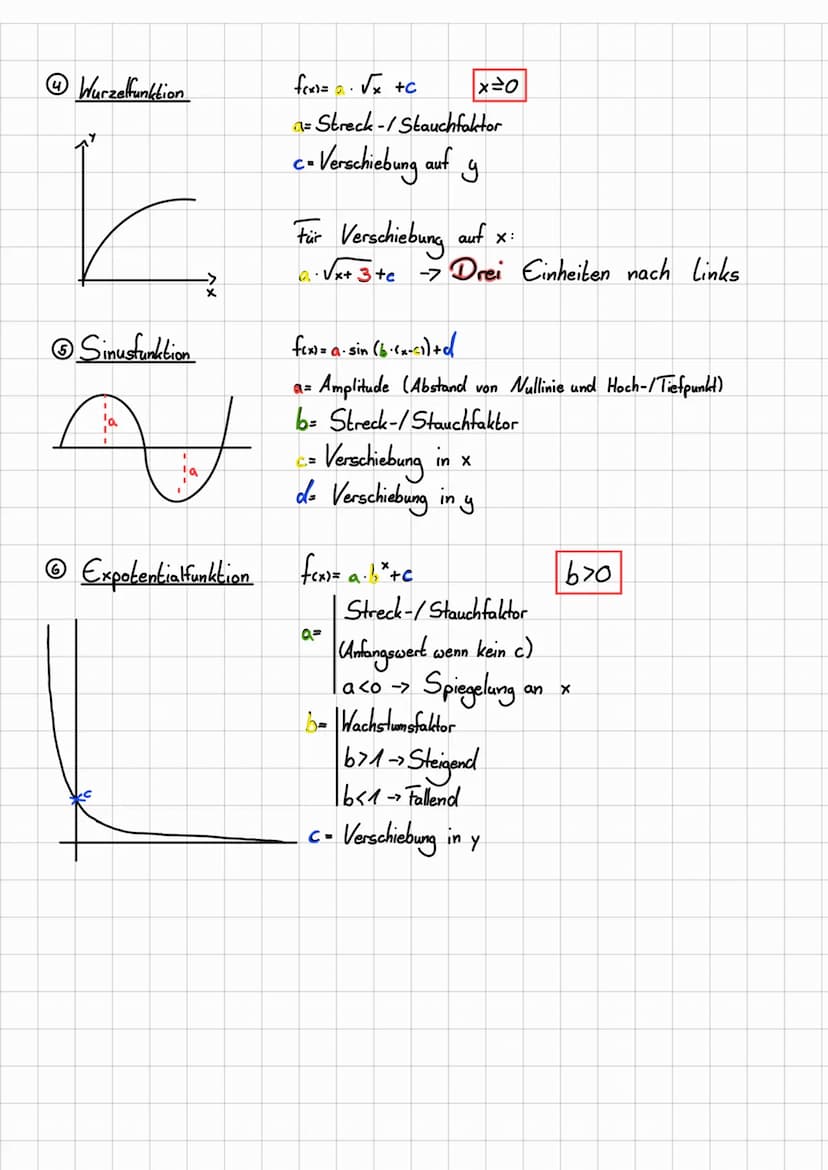 ④ Wurzelfunktion
f(x)= a · √x + c
x≥0
a= Streck-/Stauchfaktor
c= Verschiebung auf y
y
x
Für Verschiebung auf x:
a · √x+3 + c → Drei Einheiten nach Links
⑤ Sinusfunktion
f(x)= a · sin (b·(x-c))+d
a= Amplitude (Abstand von Nullinie und Hoch-/Tiefpunkt)
a
a
b= Streck-/Stauchfaktor
c= Verschiebung in x
d= Verschiebung in y
⑥ Expotentialfunktion
f(x)= a·bˣ+c
b>0
a= Streck-/Stauchfaktor
(Anfangswert wenn kein c)
a<0 → Spiegelung an x
b= Wachstumsfaktor
b>1 → Steigend
b<1 → Fallend
c
c= Verschiebung in y